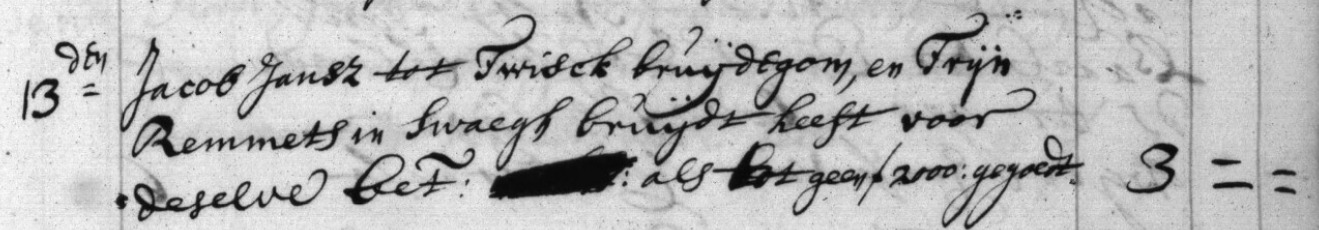 13 den = Jacob Jansz tot Twisck bruijdegom, en Trijn
Remmets in Swaegh bruijdt heeft voor
deselve bet: : als tot geen ƒ 2000: gegoedt. 3 = =